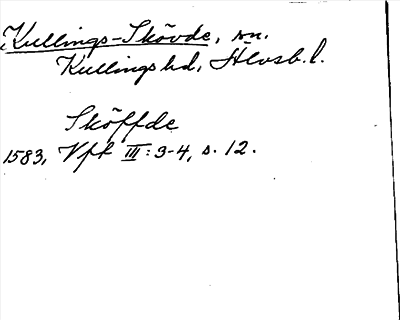 Kullings-Skövde, sn.
Kullings hd, Älvsb. l.
Sköffde
1583, Vft III: 3-4, s. 12.